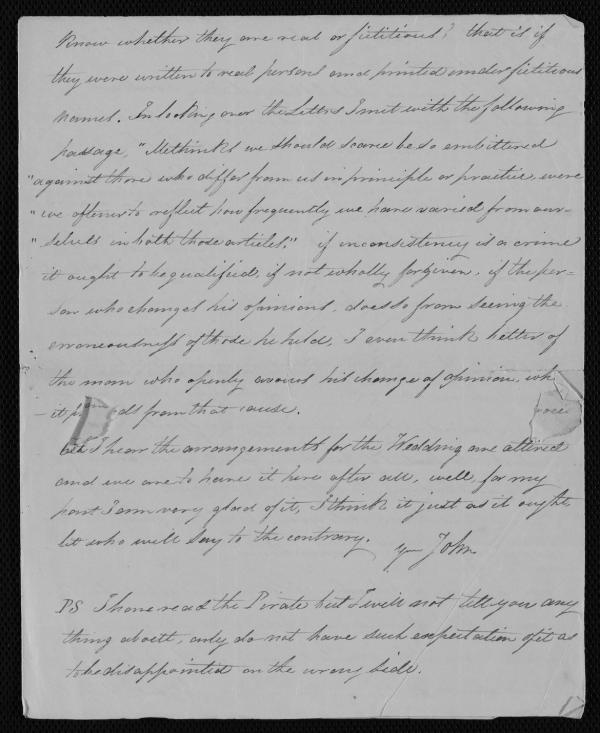 know whether they are real or fictitious? that is if
they were written to real persons and printed under fictitious
names. In looking over the Letters I met with the following
passage, "Methinks we should scarce be so embittered
"against those who differ from us in principle or practice, were
"we oftener to reflect how frequently we have varied from our=
"selves in both those articles." if inconsistency is a crime
it ought to be qualified, if not wholly forgiven, if the per=
son who changes his opinions, does so from seeing the
erroneousness of those he held, I even think better of
the man who openly avows his change of opinion, wh
it ds from that cause.
I hear the arrangements for the Wedding are altered
and we are to have it here after all, well, for my
part I am very glad of it, I think it just as it ought,
let who will say to the contrary. John
PS I have read the Pirate but I will not tell you any
thing about it, only do not have such expectation of it as
to be disappointed on the wrong side.